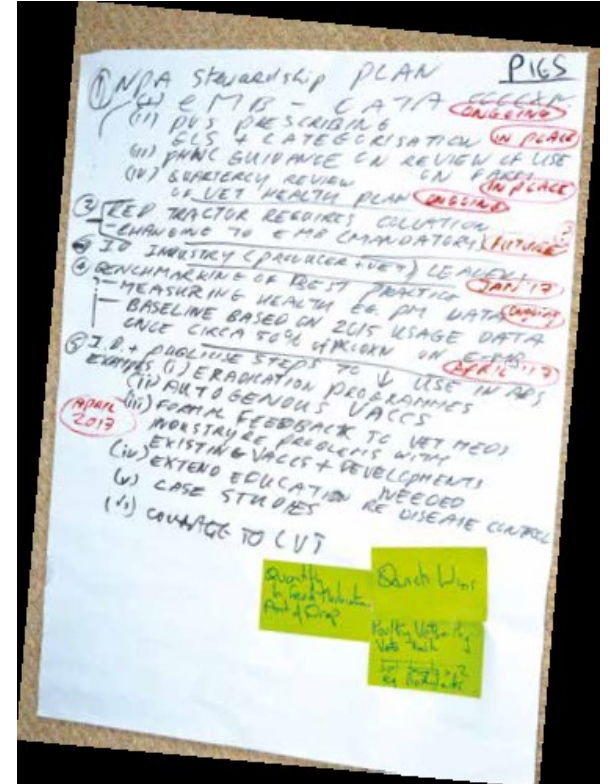 PIGS
① NPA Stewardship PLAN
(i) eMB - DATA ONGOING
(ii) PVS PRESCRIBING
GLS + CATEGORISATION IN PLACE
(iii) PHWC GUIDANCE ON REVIEW OF USE
ON FARM IN PLACE
(iv) QUARTERLY REVIEW
OF VET HEALTH PLAN ONGOING
② RED TRACTOR REQUIRES
- CHANGING TO EMB (MANDATORY) FUTURE ?
③ ID INDUSTRY (PRODUCER + VET) LEADERS
④ BENCHMARKING OF BEST PRACTICE JAN '17
- MEASURING HEALTH EG. PM DATA ONGOING
- BASELINE BASED ON 2015 USAGE DATA
ONCE CIRCA 50% OF ON E-MB
⑤ I.D. + PUBLICISE STEPS TO ↓ USE IN ABS APRIL '17
EXAMPLES (i) ERADICATION PROGRAMMES
(ii) AUTOGENOUS VACCS
APRIL 2017
(iii) FORMAL FEEDBACK TO VET MEDS
INDUSTRY RE PROBLEMS WITH
EXISTING VACCS + DEVELOPMENTS
NEEDED
(iv) EXTEND EDUCATION RE DISEASE CONTROL
(v) CASE STUDIES
(vi) COURAGE TO CUT
Quantify
In Feed Medication
Quick Wins
Poultry Vets Pig
Vets